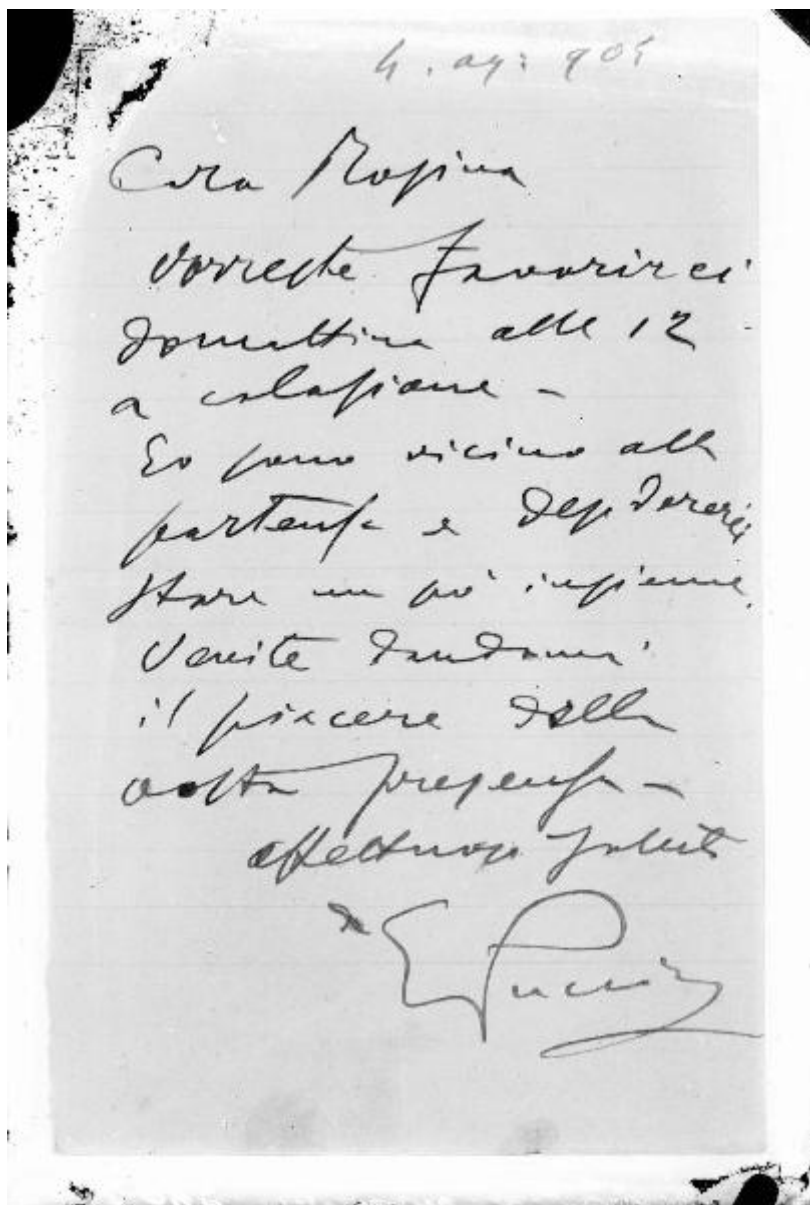 4. ag: 905
Cara Rosina
Vorreste favorirci
domattina alle 12
a colasione -
Io sono vicino alla
partenza e desidererei
stare un pò insieme.
Venite dandomi
il piacere della
vostra presenza -
affettuosi saluti
GPuccini